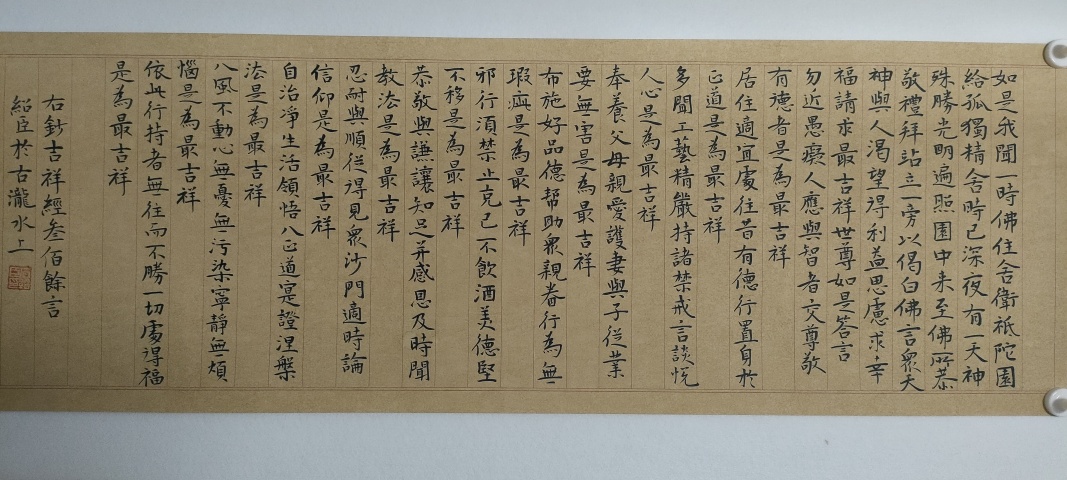 如是我聞一時佛住舍衛祇陀園
給孤獨精舍時已深夜有一天神
殊勝光明遍照園中来至佛所恭
敬禮拜站立一旁以偈白佛言眾天
神與人渴望得利益思慮求幸
福請求最吉祥世尊如是答言
勿近愚癡人應與智者交尊敬
有德者是為最吉祥
居住適宜處往昔有德行置身於
正道是為最吉祥
多聞工藝精嚴持諸禁戒言談悦
人心是為最吉祥
奉養父母親愛護妻與子從業
要無害是為最吉祥
布施好品德帮助眾親眷行為無
瑕疵是為最吉祥
邪行須禁止克己不飲酒美德堅
不移是為最吉祥
恭敬與謙讓知足并感恩及時聞
教法是為最吉祥
忍耐與順從得見眾沙門適時論
信仰是為最吉祥
自治淨生活領悟八正道寔證涅槃
法是為最吉祥
八風不動心無憂無污染寧靜無煩
惱是為最吉祥
依此行持者無往而不勝一切處得福
是為最吉祥
右鈔吉祥經叁佰餘言
紹臣於古瀧水上